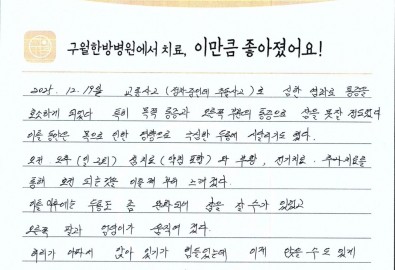 구월한방병원에서 치료, 이만큼 좋아졌어요!
2025. 12. 19일 교통사고 ( ) 로 심한 염좌로 통증을
호소하게 되었다 특히 목쪽 통증과 오른쪽 부위의 통증으로 잠을 못잘 정도였다
이틀 동안은 목으로 인한 영향으로 극심한 두통에 시달리기도 했다.
오전 오후 침치료 (약침 포함) 와 부항, 전기치료 · 추나치료를
통해 호전 되는것을 이틀째 부터 느껴졌다.
이틀 이후에는 두통도 좀 완화되어 잠을 잘 수가 있었고
오른쪽 팔과 움직여 졌다.
허리가 아파서 앉아 있기가 힘들었는데 이제 앉을 수도 있게